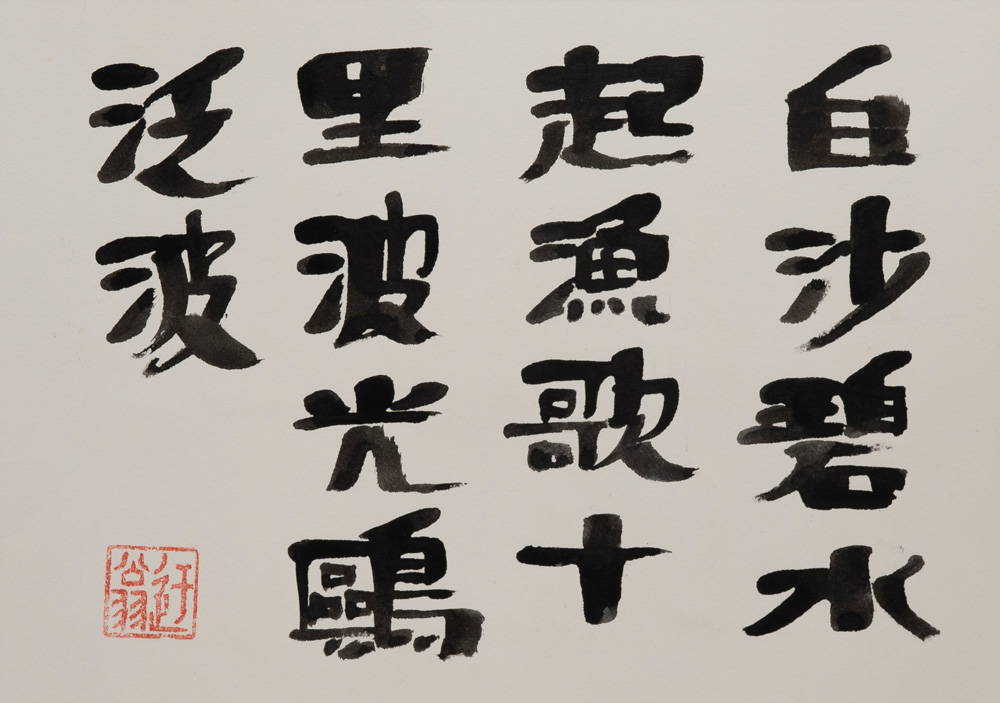 白沙碧水
起漁歌十
里波光鷗
泛波
迂翁